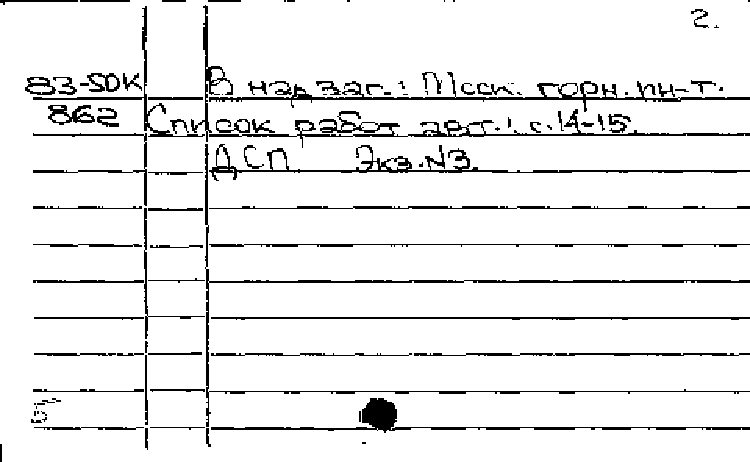 2.
83-50К В надзаг.: Моск. горн. ин-т.
862 Список работ авт.: с. 14-15.
ДСП Экз. N3.
Б